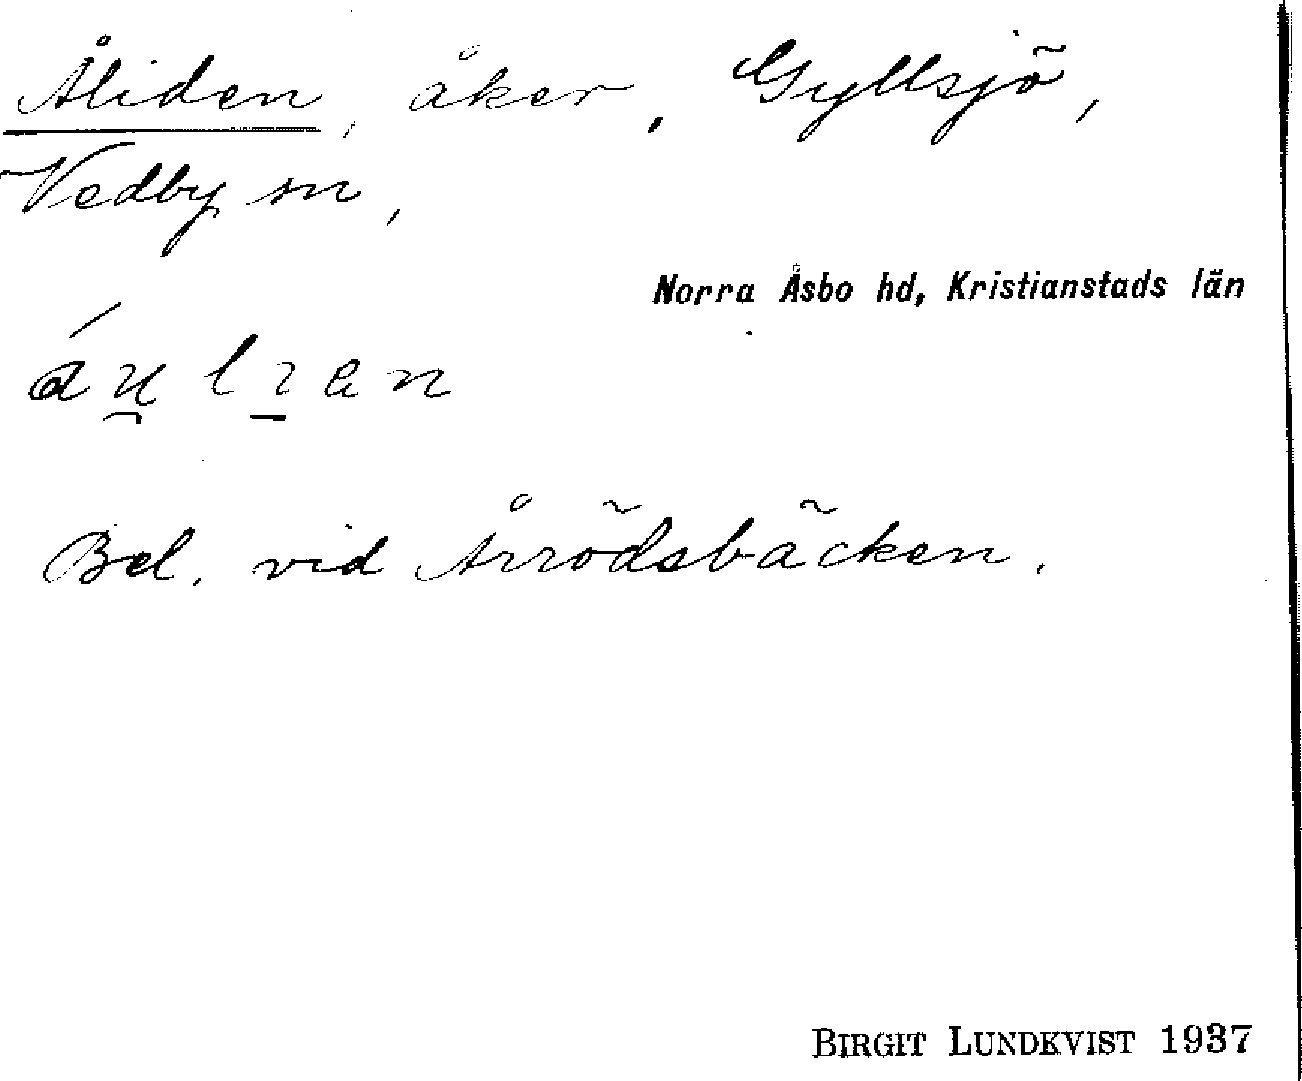 Åliden, åker, Gyllsjö,
Vedby sn,
Norra Åsbo hd, Kristianstads län
áu̯lı̱en
Bel. vid Årrödsbäcken.
BIRGIT LUNDKVIST 1937